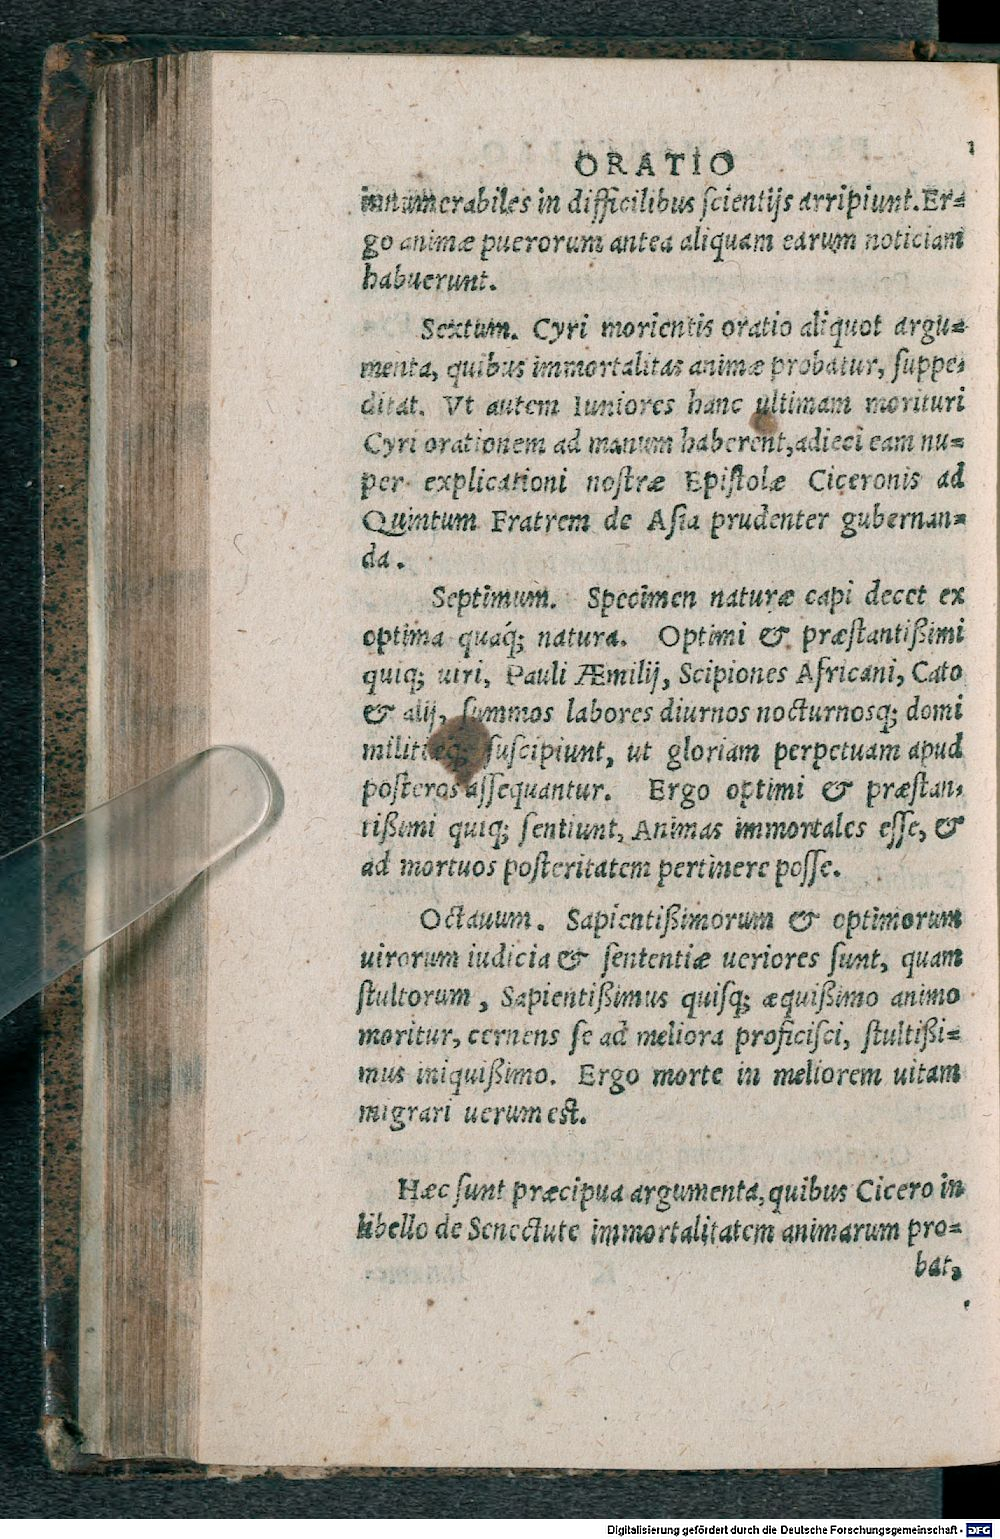 ORATIO
innumerabiles in difficilibus ſcientijs arripiunt. Er-
go animæ puerorum antea aliquam earum noticiam
habuerunt.
Sextum. Cyri morientis oratio aliquot argu-
menta, quibus immortalitas animæ probatur, ſuppe-
ditat. Vt autem Iuniores hanc ultimam morituri
Cyri orationem ad manum haberent, adieci eam nu-
per explicationi noſtræ Epiſtolæ Ciceronis ad
Quintum Fratrem de Aſia prudenter gubernan-
da.
Septimum. Specimen naturæ capi decet ex
optima quaq́; natura. Optimi & præſtantißimi
quiq; uiri, Pauli Æmilij, Scipiones Africani, Cato
& alij, ſummos labores diurnos nocturnosq; domi
militiæq; ſuſcipiunt, ut gloriam perpetuam apud
poſteros aſſequantur. Ergo optimi & præſtan-
tißimi quiq; ſentiunt, Animas immortales eſſe, &
ad mortuos poſteritatem pertinere poſſe.
Octauum. Sapientißimorum & optimorum
uirorum iudicia & ſententiæ ueriores ſunt, quam
ſtultorum, Sapientißimus quiſq; æquißimo animo
moritur, cernens ſe ad meliora proficiſci, ſtultißi-
mus iniquißimo. Ergo morte in meliorem uitam
migrari uerum eſt.
Hæc ſunt præcipua argumenta, quibus Cicero in
libello de Senectute immortalitatem animarum pro-
bat,
Digitalisierung gefördert durch die Deutsche Forschungsgemeinschaft - DFG